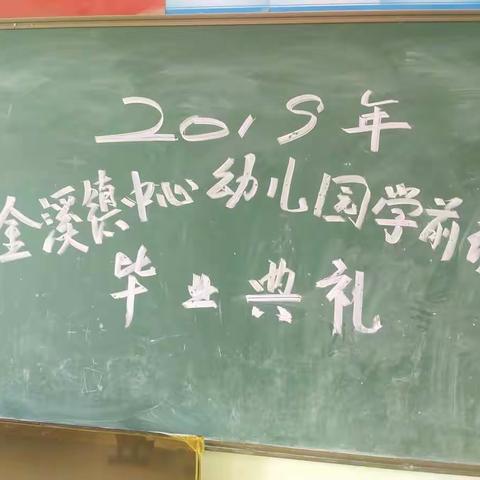 2019年
金溪镇中心幼儿园学前
毕业典礼